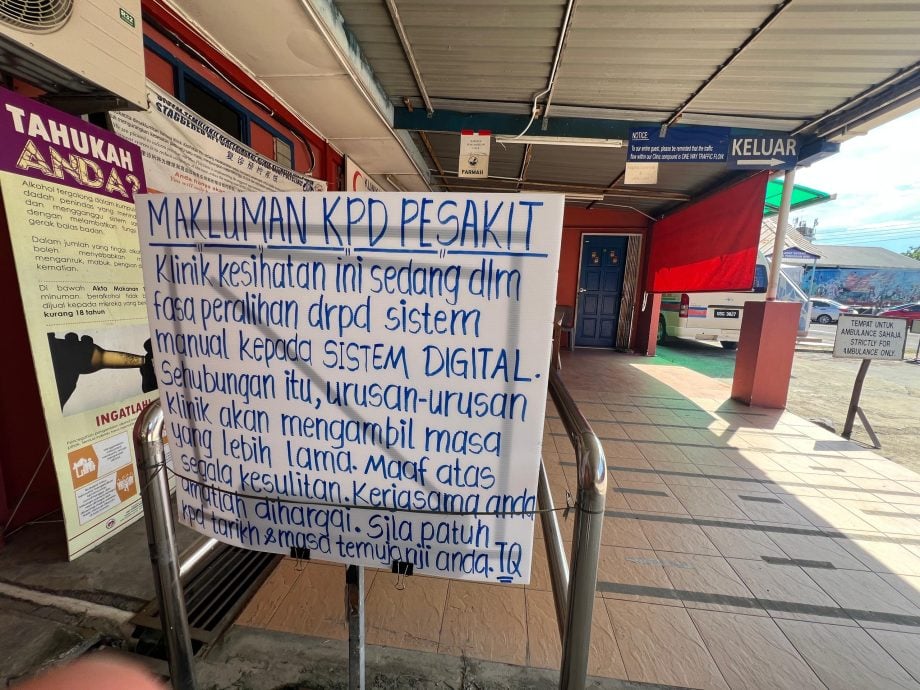 TAHUKAH
ANDA?
Alkohol tergolong dalam
Dalam jumlah yang tinggi,
boleh menyebabkan
kematian.
Di bawah Akta Makanan
minuman beralkohol
dijual kepada mereka yang
kurang 18 tahun
INGATLAH
STAGGERED
MAKLUMAN KPD PESAKIT
Klinik kesihatan ini sedang dlm
fasa peralihan drpd sistem
manual kepada SISTEM DIGITAL.
sehubungan itu, urusan-urusan
klinik akan mengambil masa
yang lebih lama. Maaf atas
segala kesulitan. Kerjasama anda
amatlah dihargai. Sila patuh
kpd tarikh & masa temujanji anda. TQ
FARMASI
NOTICE:
To our entire guest, please be reminded that the traffic
flow within our Clinic compound is ONE WAY TRAFFIC ONLY
KELUAR
TEMPAT UNTUK
AMBULANCE SAHAJA
STRICTLY FOR
AMBULANCE ONLY